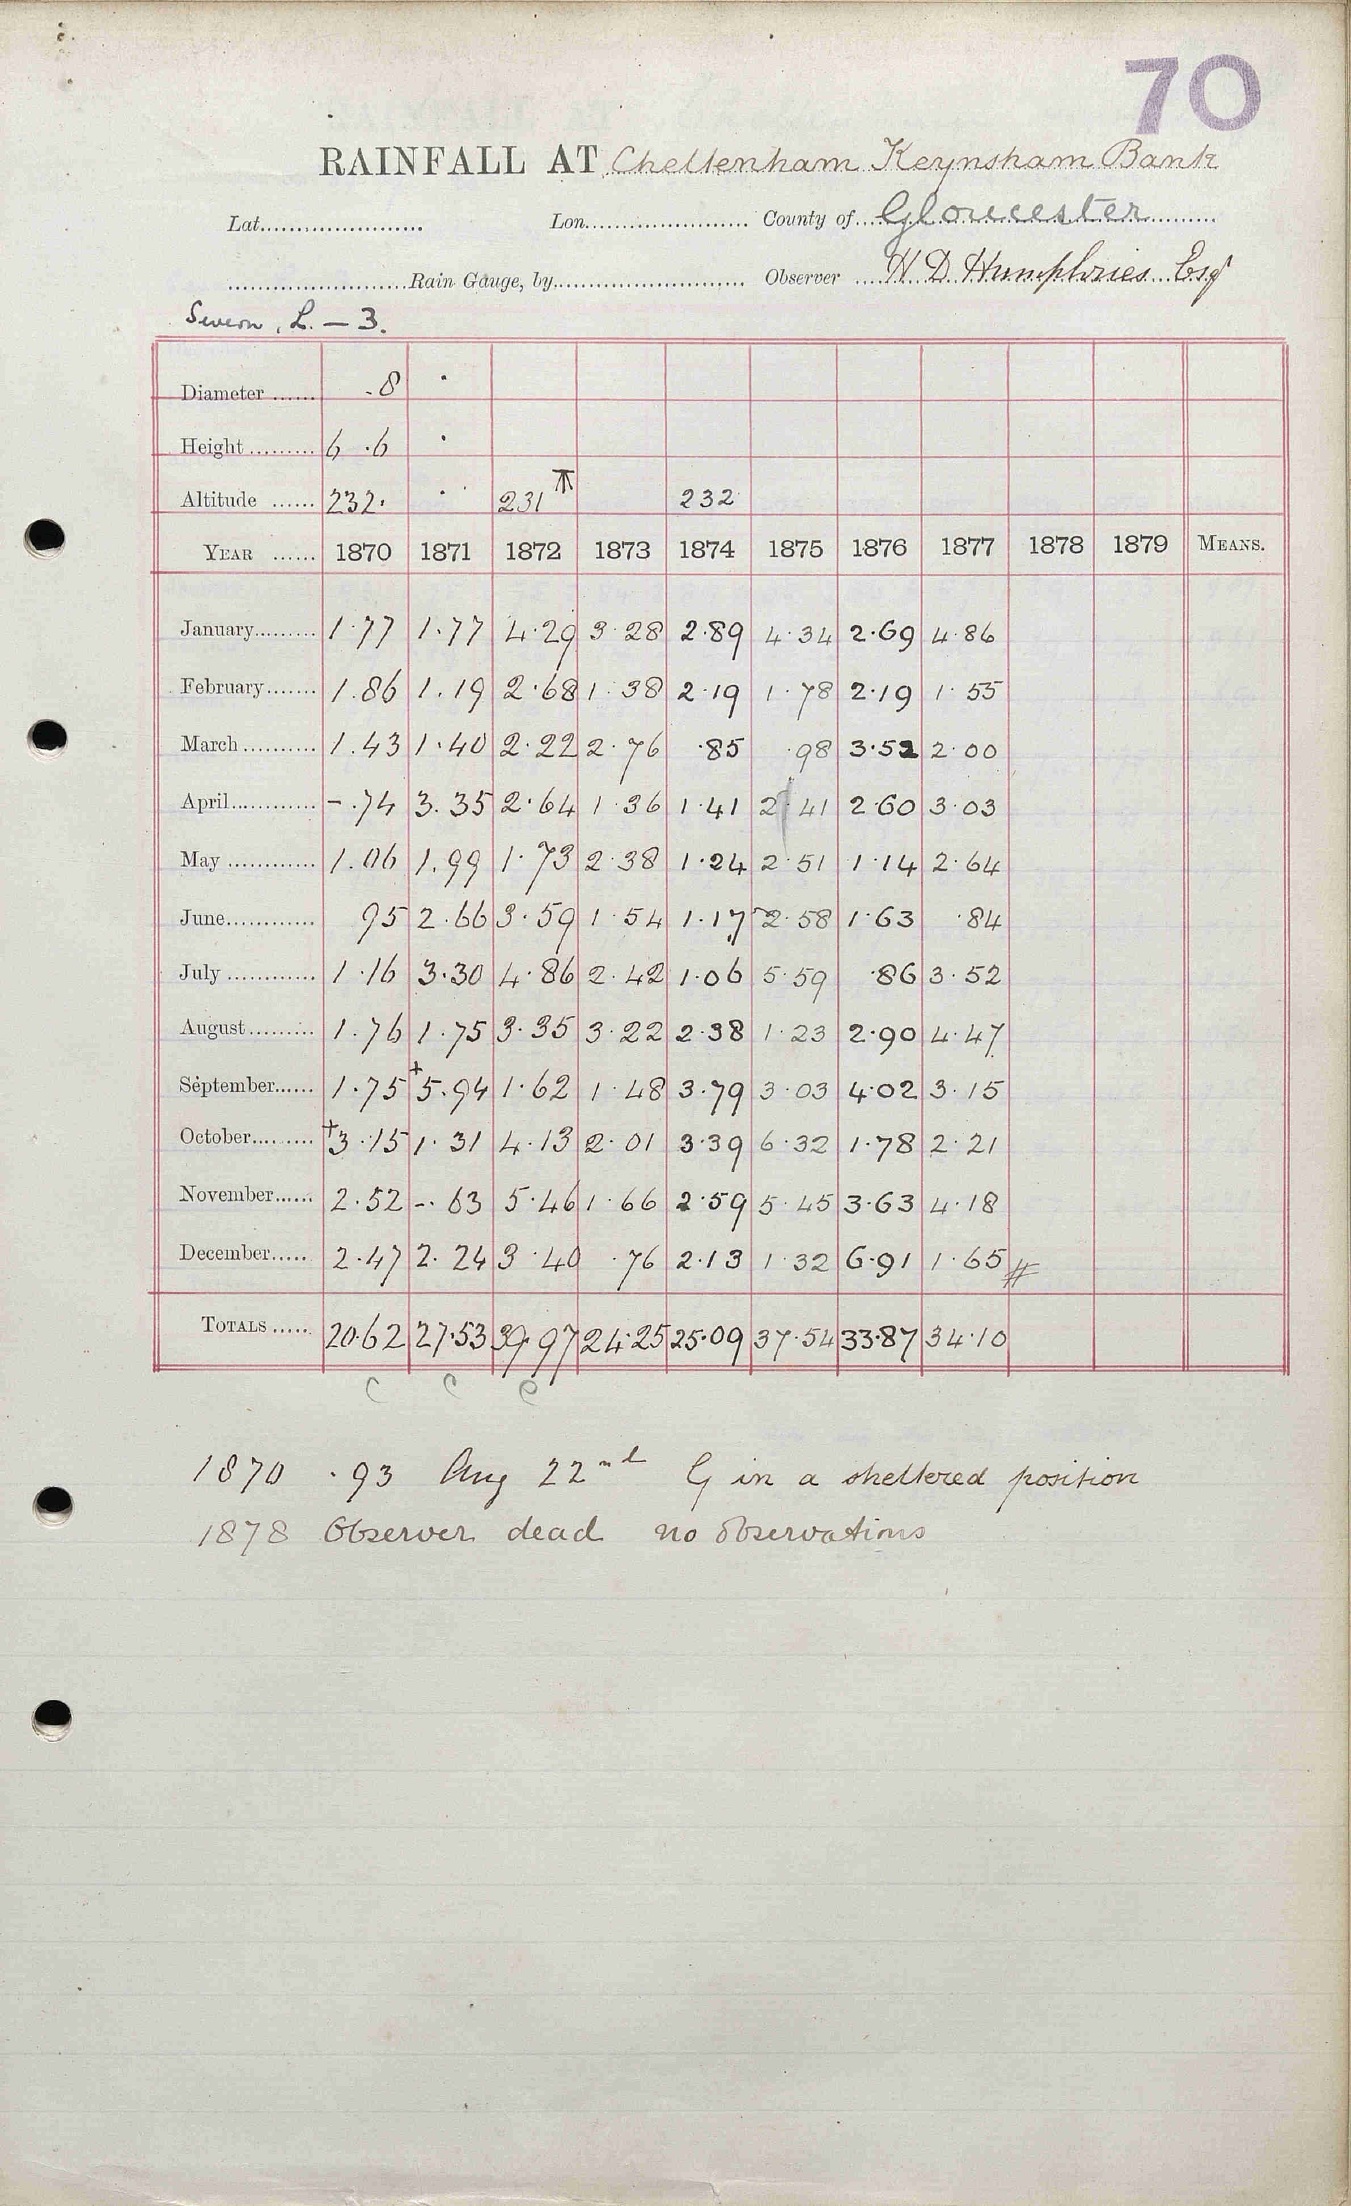 70
RAINFALL AT Cheltenham Keynsham Bank
Lat...................... Lon...................... County of Gloucester
Rain Gauge, by...................... Observer H. D. Humphries Esqr
Severn, L. — 3.
Diameter ...... .8 .
Height ......... 6 .6 .
Altitude ...... 232. . 231 232
YEAR ...... 1870 1871 1872 1873 1874 1875 1876 1877 1878 1879 MEANS.
January......... 1.77 1.77 4.29 3.28 2.89 4.34 2.69 4.86
February....... 1.86 1.19 2.68 1.38 2.19 1.78 2.19 1.55
March .......... 1.43 1.40 2.22 2.76 .85 .98 3.52 2.00
April............ -.74 3.35 2.64 1.36 1.41 2.41 2.60 3.03
May ............ 1.06 1.99 1.73 2.38 1.24 2.51 1.14 2.64
June............ 95 2.66 3.59 1.54 1.17 2.58 1.63 .84
July ............ 1.16 3.30 4.86 2.42 1.06 5.59 .86 3.52
August......... 1.76 1.75 3.35 3.22 2.38 1.23 2.90 4.47
September...... 1.75 +5.94 1.62 1.48 3.79 3.03 4.02 3.15
October......... +3.15 1.31 4.13 2.01 3.39 6.32 1.78 2.21
November...... 2.52 -.63 5.46 1.66 2.59 5.45 3.63 4.18
December..... 2.47 2.24 3.40 .76 2.13 1.32 6.91 1.65 #
TOTALS ..... 20.62 27.53 39.97 24.25 25.09 37.54 33.87 34.10
c c c
1870 .93 Aug 22nd G in a sheltered position
1878 Observer dead no observations